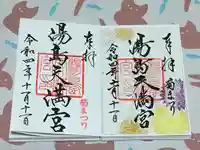 奉拝
湯島天満宮
令和四年十一月十一日
菊まつり
奉拝
湯島天満宮
令和四年十一月十一日
菊まつり